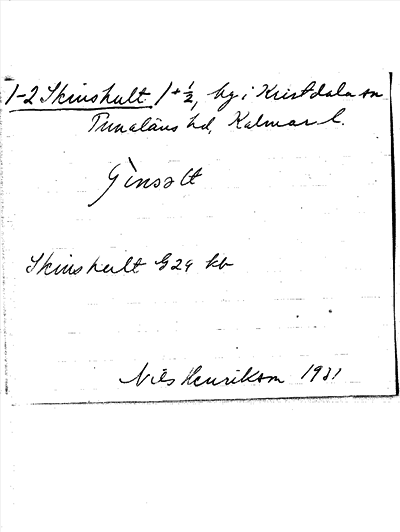 1-2 Skinshult 1 + 1/2, by i Kristdala sn
Tunaläns hd, Kalmar l.
Skinshult G29 kb
Nils Henrikson 1931